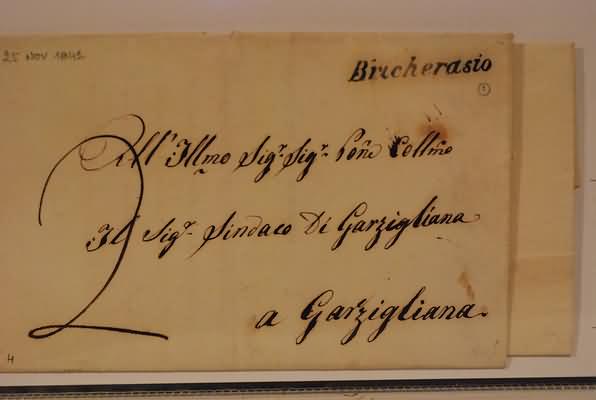 25 NOV 1842
Bricherasio
1
All' Illmo Sigr. Sigr. Pone Collmo
Il Sigr. Sindaco Di Garzigliana
2
a Garzigliana.
4